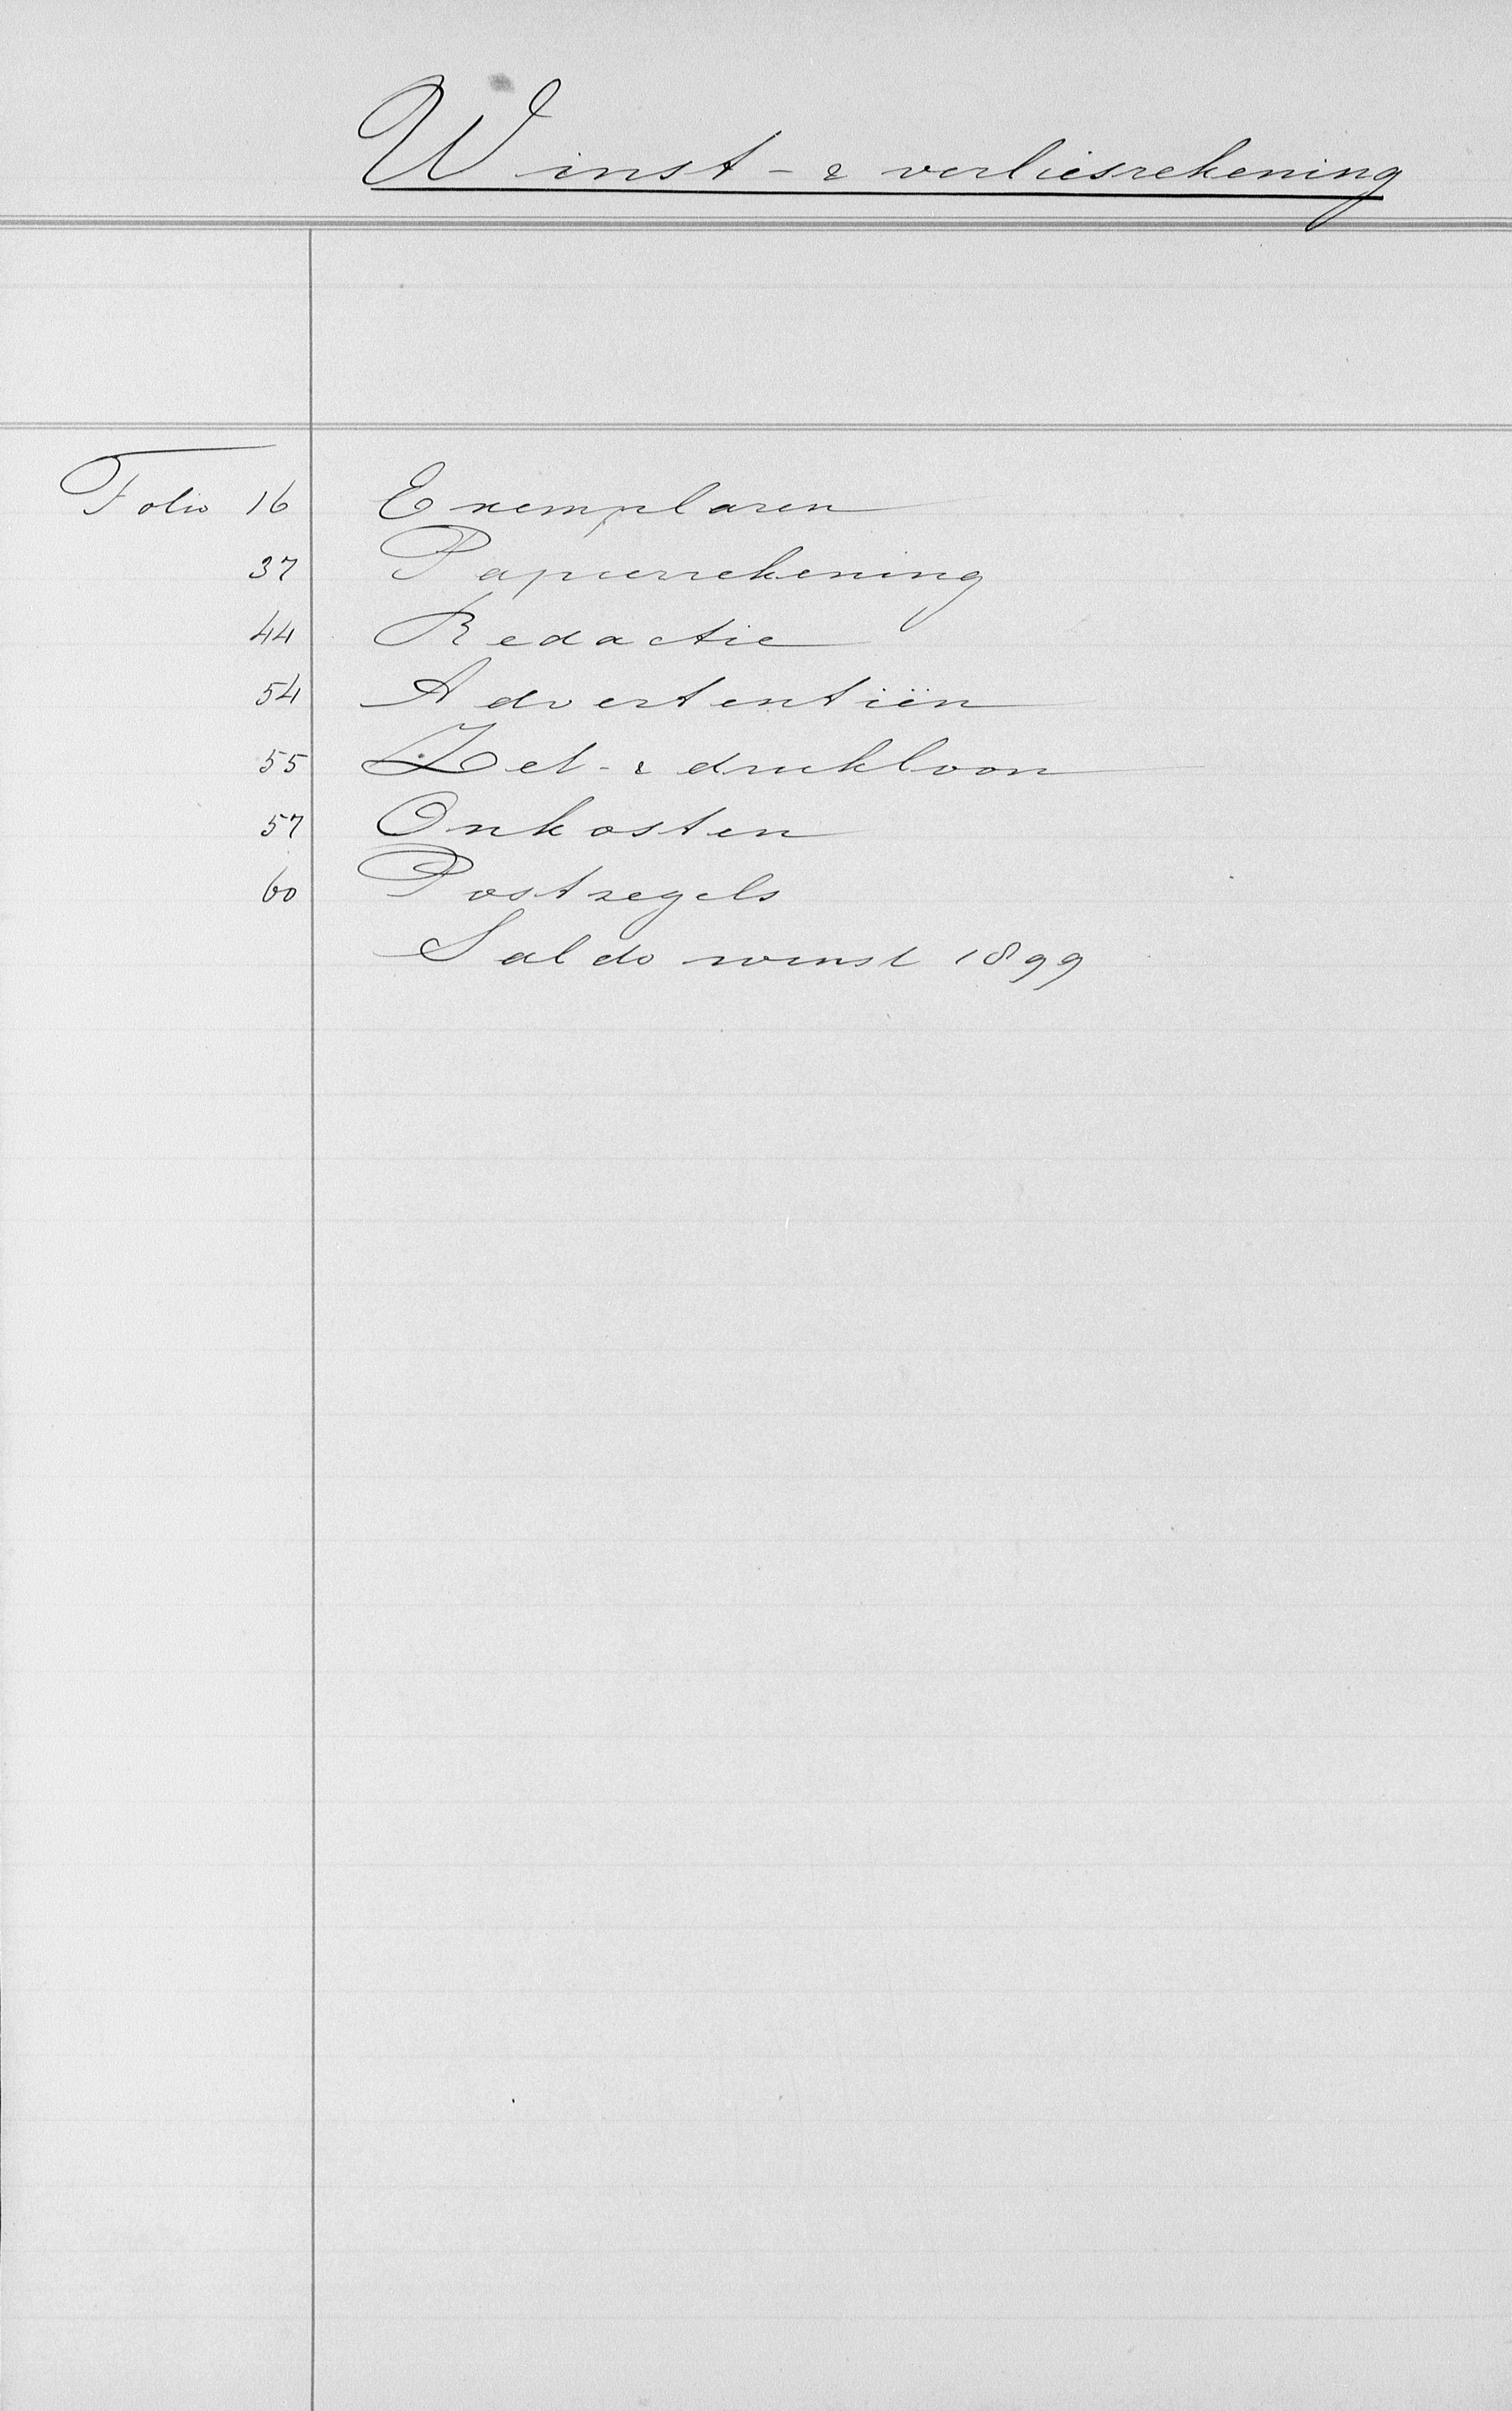 Winst- & verliesrekening
Folio 16 Exemplaren
37 Papierrekening
44 Redactie
54 Advertentiën
55 Zet- & drukloon
57 Onkosten
60 Postzegels
Saldo winst 1899